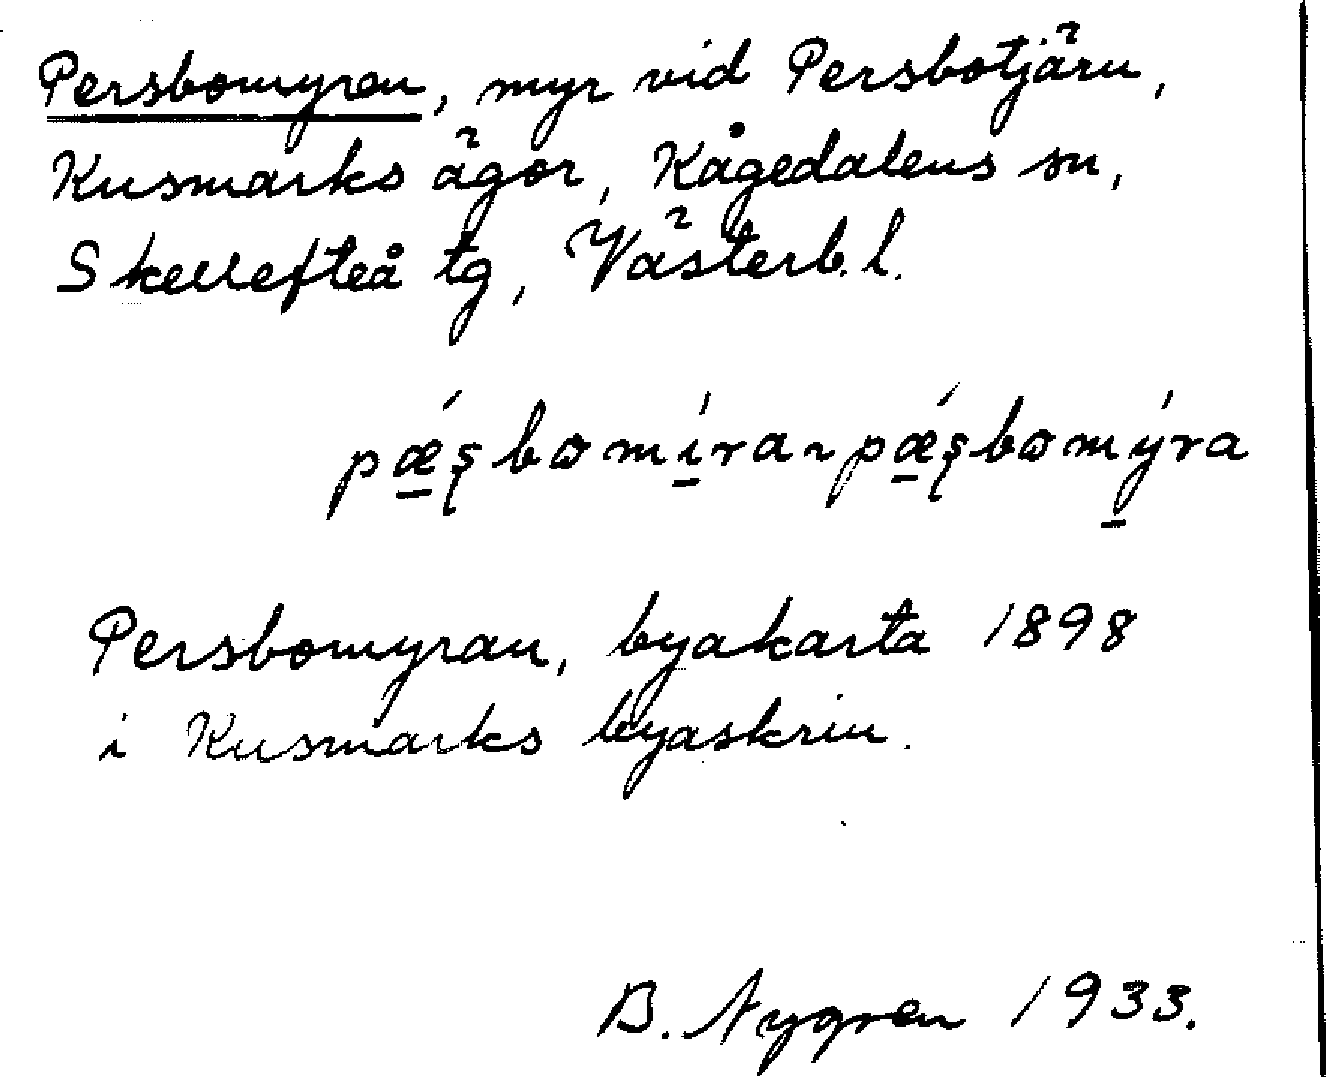 Persbomyren, myr vid Persbotjärn,
Kusmarks ägor, Kågedalens sn,
Skellefteå tg, Västerb. l.
pǽ̱ʂbomí̱ra ~ pǽ̱ʂbomý̱ra
Persbomyran, byakarta 1898
i Kusmarks byaskrin.
B. Nygren 1933.